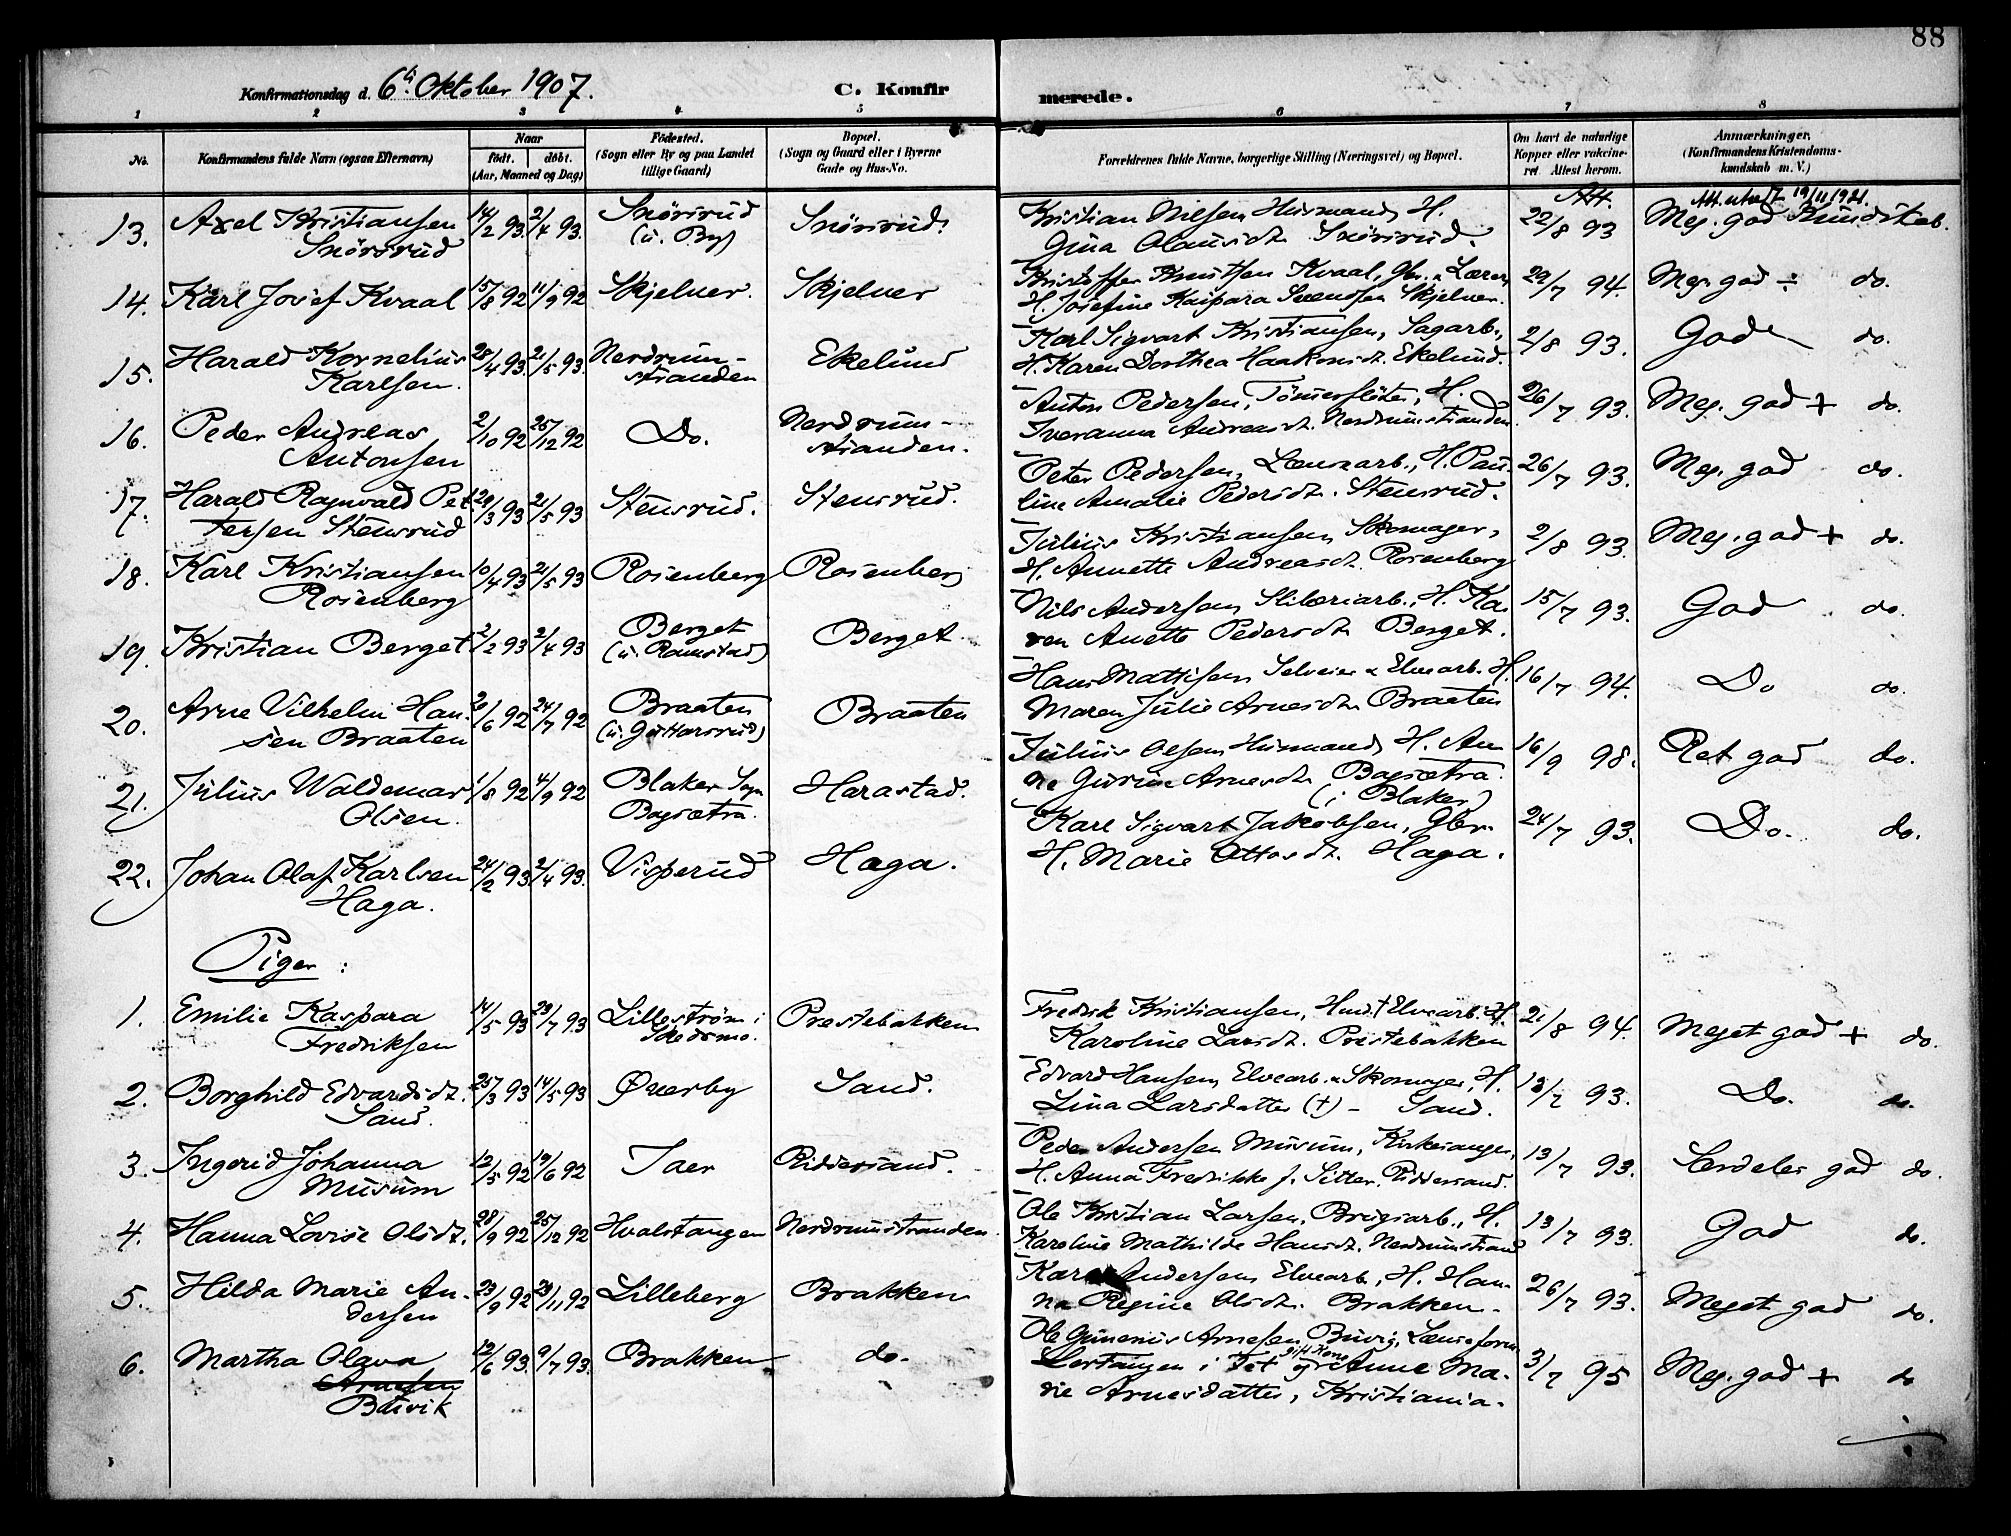 88
Konfirmationsdag d. 6te Oktober 1907.
C. Konfir
merede.
1 2 3 4 5 6 7 8
No.
Konfirmandens fulde Navn (ogsaa Efternavn)
Naar
født. døbt.
(Aar, Maaned og Dag)
Fødested.
(Sogn eller By og paa Landet
tillige Gaard)
Bopæl.
(Sogn og Gaard eller i Byerne
Gade og Hus-No.
Forældrenes fulde Navne, borgerlige Stilling (Næringsvei) og Bopæl.
Om havt de naturlige
Kopper eller vaccine-
ret. Attest herom.
Anmærkninger.
(Konfirmandens Kristendoms-
kundskab m. V.)
Att. Att. utst. 19/11 1921.
13. Axel Kristiansen 14/2 93. 2/4 93. Snörsrud Snörsrud. Kristian Nilsen Husmand, H. 22/8 93 Meg. god Kundskab.
Snörsrud (u. By) Gina Olausdt. Snörsrud.
14. Karl Josef Kvaal 15/8 92 11/9 92 Skjelver. Skjelver Kristoffer Knutsen Kvaal, Gbr. & Lærer 29/7 94. Meg. god ÷ do.
H. Josefine Kaspara Svendsen Skjelver.
15. Harald Kornelius 28/4 93. 21/5 93. Nerdrum- Ekelund Karl Sigvart Kristiansen, Sagarb., 2/8 93. God do.
Karlsen. stranden H. Karen Dorthea Haakonsdt. Ekelund.
16. Peder Andreas 2/10 92 25/12 92 Do. Nerdrum- Anton Pedersen, Tömmerflöter, H. 26/7 93. Meg. god + do.
Antonsen stranden. Iveranna Andreasdt. Nerdrumstranden
17. Harald Ragnvald Pet 29/3 93 21/5 93 Stensrud. Stensrud. Peter Pedersen, Lænsearb., H. Pau 26/7 93. Meg. god do.
tersen Stensrud line Amalie Pedersdt. Stensrud.
18. Karl Kristiansen 10/4 93 21/5 93 Rosenberg Rosenberg Julius Kristiansen Skomager, 2/8 93. Meg. god + do.
Rosenberg H. Annette Andreasdt. Rosenberg
19. Kristian Berget 2/2 93 2/4 93 Berget Berget Nils Andersen Sliberiarb., H. Ka 15/7 93. God do.
(u. Ramstad) ren Anette Pedersdt. Berget.
20. Arne Vilhelm Han- 20/6 92 24/7 92 Braaten Braaten Hans Mathisen Selveier & Elvearb. H. 16/7 94. Do do.
sen Braaten (u. Guttarsrud) Maren Julie Arnesdt. Braaten
21. Julius Waldemar 1/8 92 4/9 92 Blaker Sogn Harastad. Julius Olsen Husmand, H. An 16/9 98. Ret god do.
Olsen. Bagsætra. ne Gurine Arnesdt. Bagsætra.
(i Blaker)
22. Johan Olaf Karlsen 24/2 93 2/4 93. Visperud Haga. Karl Sigvart Jakobsen, Gbr. 24/7 93. Do. do.
Haga. H. Marie Ottosdt. Haga.
Piger :
1. Emilie Kaspara 14/5 93 23/7 93 Lilleström i Prestebakken Fredrik Kristiansen, Husm. & Elvearb. H. 21/8 94. Meget god + do.
Fredriksen Skedsmo. Karoline Larsdt. Prestebakken
2. Borghild Edvardsdt. 25/3 93 14/5 93 Øverby Sand. Edvard Hansen, Elvearb. & Skomager, H. 13/7 93. Do. do.
Sand. Lina Larsdatter (+) - Sand.
3. Ingerid Johanna 12/5 92 19/6 92 Taer Riddersand. Peder Andersen Musum, Kirkesanger, 13/7 93. Særdeles god do.
Musum H. Anna Fredrikke f. Sitter. Riddersand.
4. Hanna Lovise Olsdt. 28/9 92 25/12 92 Hvalstangen Nerdrumstranden. Ole Kristian Larsen, Brugsarb., H. 13/7 93. God do.
Karoline Mathilde Hansdt. Nerdrumstrand
5. Hilda Marie An- 23/9 92 20/11 92 Lilleberg Brakken Karl Andersen Elvearb., H. Han- 26/7 93. Meget god do.
dersen na Regine Olsdt. Brakken.
6. Martha Olava 12/6 93. 9/7 93. Brakken do. Ole Gunerius Arnesen Buvig, Lænseform
Arnesen Lertangen i Fet og gift Kone Anne Ma- 3/7 95 Meg. god + do
Buvik rie Arnesdatter, Kristiania.